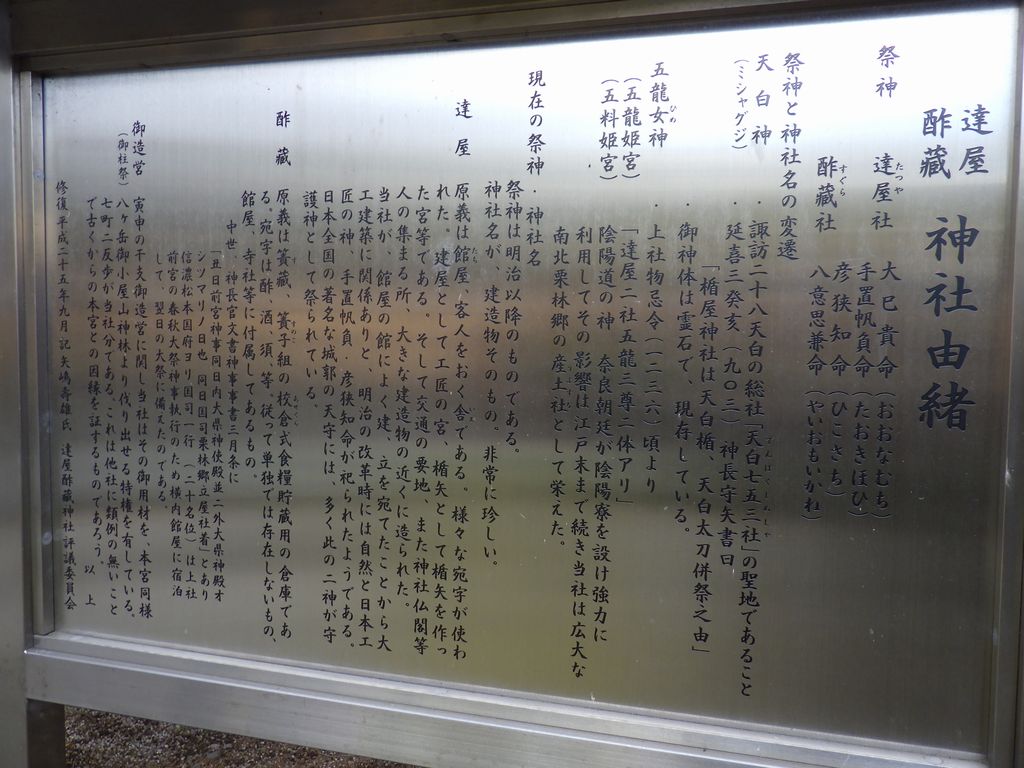 達屋
酢蔵 神社由緒
祭神 達屋社 大己貴命(おおなむち)
たつや
手置帆負命(たおきほひ)
彦狭知命(ひこさち)
酢蔵社 八意思兼命(やいおもいかね)
すぐら
祭神と神社名の変遷
天白神 ・諏訪二十八天白の総社「天白七五三社」の聖地であること
(ミシャグジ) ・延喜三癸亥(九〇三) 神長守矢書曰
「楯屋神社は天白楯、天白太刀併祭之由」
・御神体は霊石で、現存している。
五龍女神 ・上社物忌令(一二三六)頃より
ひめ
(五龍姫宮) 「達屋二社五龍三尊二体アリ」
(五料姫宮) 陰陽道の神 奈良朝廷が陰陽寮を設け強力に
利用してその影響は江戸末まで続き当社は広大な
南北栗林郷の産土社として栄えた。
現在の祭神・神社名
祭神は明治以降のものである。
神社名が、建造物そのもの。非常に珍しい。
達屋 原義は館屋、客人をおく舎である。様々な宛字が使わ
れた。建屋として工匠の宮、楯矢として楯矢を作っ
た宮等である。そして交通の要地、また神社仏閣等
人の集まる所、大きな建造物の近くに造られた。
当社が、館屋の館によく建、立を宛てたことから大
工建築に関係ありと、明治の改革時には自然と日本工
匠の神 手置帆負 彦狭知命が祀られたようである。
日本全国の著名な城郭の天守には、多く此の二神が守
護神として祭られている。
酢蔵 原義は簀蔵、簀子組の校倉式食糧貯蔵用の倉庫であ
る。宛字は酢、酒、須、等。従って単独では存在しないもの、
館屋、寺社等に付属してあるもの。
中世、神長官文書神事事書三月条に
「丑日前宮神事同日内大県神使殿並二外大県神殿オ
シツマリノ日也 同日国司栗林郷立屋社着」とあり
信濃松本国府ヨリ国司一行(二十名位)は上社
前宮の春秋大祭神事執行のため横内館屋に宿泊
して、翌日の大祭に備えたのである。
御造営 寅申の干支御造営に関し当社はその御用材を、本宮同様
(御柱祭) 八ヶ岳御小屋山神林より伐り出せる特権を有している。
七町二反歩が当社分である。これは他社に類例の無いこと
で古くからの本宮との因縁を証するものであろう。以上
修復平成二十五年九月記 矢嶋壽雄氏 達屋酢蔵神社評議委員会